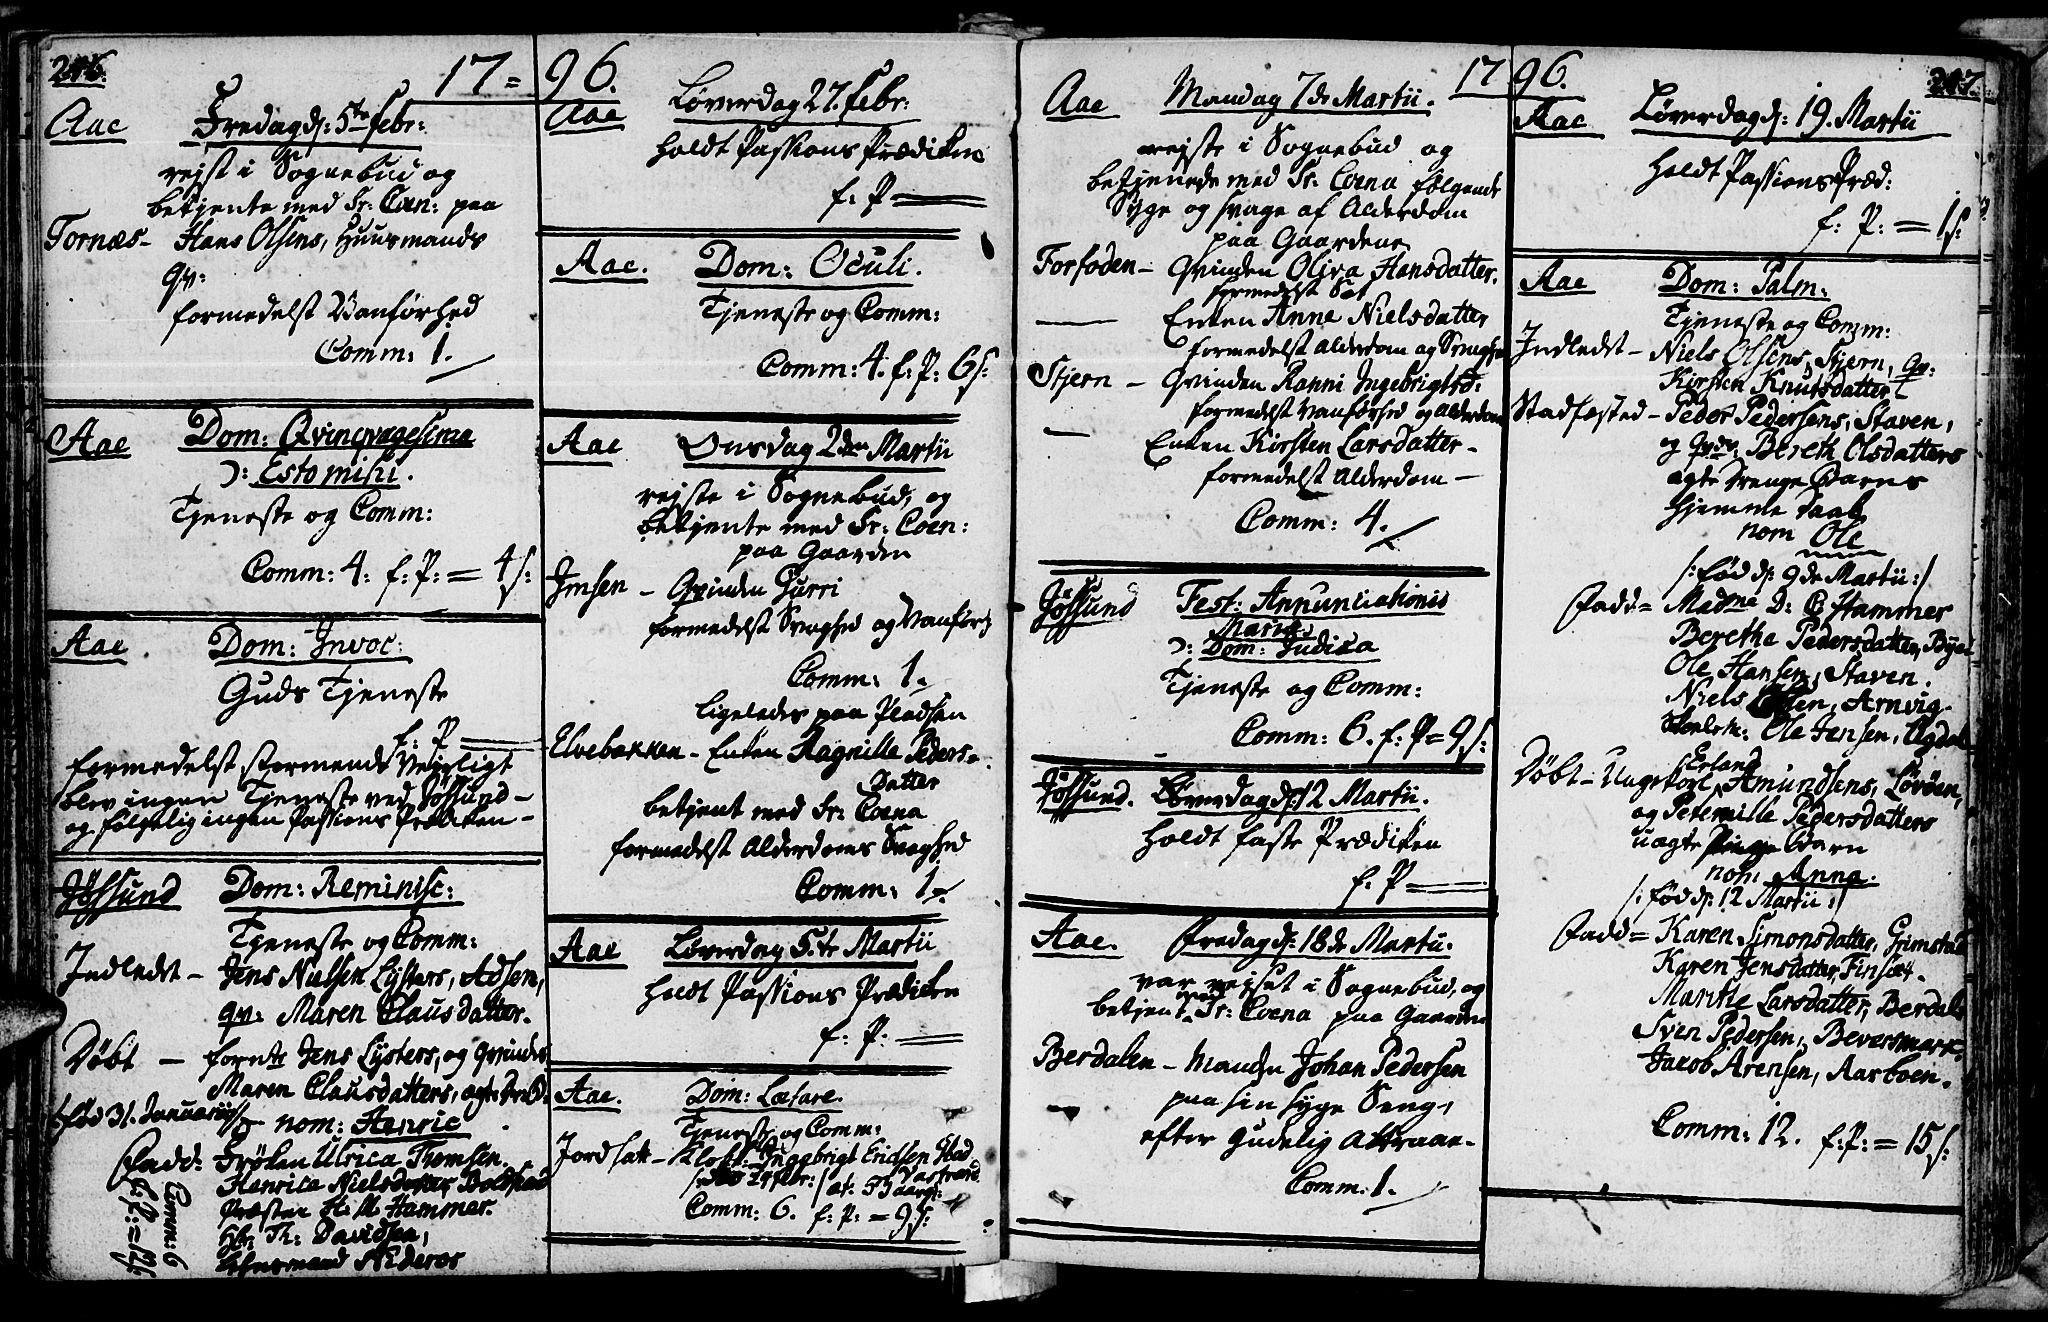 17 = 96.
Aae Fredag d: 5te Febr:
rejst i Sognebud og
betjente med Sr: Coen: paa
Tornæs - Hans Olsens, Huusmands
Qv:
formedelst Vanførhed
Comm: 1.
Aae Dom: Qvinqvagesima
ɔ: Estomihi.
Tjeneste og Comm:
Comm: 4: f: P: = 4 s:
Aae. Dom: Invoc:
Guds Tjeneste
f: P
formedelst stormende Vejrligt
blev ingen Tjeneste ved Jössund -
og følgelig ingen Passions Prædiken -
Jössund Dom: Reminisc:
Tjeneste og Comm:
Indledt - Jens Nielsen Lysters, Adsen,
qv: Maren Clausdatter.
Döbt - fornte Jens Lysters, og Qvindes
Maren Clausdatters, ægte
/: fød 31. Januarii :/ nom: Henric
Fadd: Frøken Ulrica Themsen.
Henrica Nielsdatter, Boldstad
Præsten H. M. Hammer.
Hr: Th: Davidsen,
Huusmand Niderøes
Comm: 6
f: P: =
Aae Løverdag 27. Febr:
Holdt Passions Prædiken
f: P
Aae. Dom: Oculi.
Tjeneste og Comm:
Comm: 4. f: P: 6 s:
Aae Onsdag 2den Martii
rejste i Sognebud, og
betjente med Sr: Coen:
paa Gaarden
Imsen - Qvinden Gurri
formedelst Svaghed og Vanførh
Comm: 1.
ligeledes paa Pladsen
Elvebakken - Enken Ragnille Peders-
Datter
betjent med Sr: Coena
formedelst Alderdoms Svaghed
Comm: 1.
Aae Løverdag 5.te Martii
Holdt Passions Prædiken
f: P.
Aae. Dom: Lætare.
Tjeneste og Comm:
Jordsatt - Ingebrigt Erichsen
Febr:
Comm: 6. f: P: = 9 s:
17 96.
Aae Mandag 7de Martii.
rejste i Sognebud og
betjenede med Sr: Coena følgende
Syge og svage af Alderdom
paa Gaardene
Forfoden - Qvinden Oliva Hansdatter.
formedelst
Enken Anne Nielsdatter
formedelst Alderdom og Svaghed
Stjern - Qvinden Ranni Ingebrigtsd:
formedelst Vanførhed og Alderdom
Enken Kirsten Larsdatter -
formedelst Alderdom -
Comm: 4.
Jössund Fest: Annunciationis
Mariæ
ɔ: Dom: Judica
Tjeneste og Comm:
Comm: 6. f: P = 9 s:
Jössund. Løverdag d: 12 Martii.
Holdt Faste Prædiken
f: P
Aae. Fredag d: 18de Martii.
var rejset i Sognebud, og
betjent med Sr: Coena paa Gaarden
Berdalen - Manden Johan Pedersen
paa sin syge Seng,
efter Gudelig Attraae.
Comm: 1.
Aae Løverdag d: 19. Martii
Holdt Passions Præd:
f: P: = 1 s:
Aae Dom: Palm:
Tjeneste og Comm:
Indledt - Niels Olsens, Stjern, Qv:
Kirsten Knutsdatter
Stadfæsted - Peder Pedersens, Staven,
og Qvs: Bereth Olsdatters
ægte Drenge Barns
Hjemme Daab
nom Ole
/: fød d: 9de Martii :/
Fadd = Madme D: C Hammer
Berethe Pedersdatter,
Ole Hansen, Staven.
Niels Arnvig.
Ole Jensen, Opdal
Döbt - Ungekarl Erland Amundsens, Lövöen,
og Peternille Pedersdatters
uægte Pige Barn
nom. Anna.
/: fød d: 12 Martii :/
Fadd = Karen Simonsdatter, Grimstad
Karen Jensdatter, Finsæt.
Marithe Larsdatter, Berdal
Sven Pedersen, Bevermark.
Jacob Arensen, Aarboen.
Comm: 12. f: P: = 15 s: